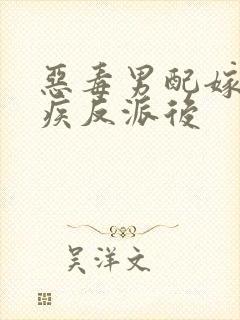 惡毒男配嫁
疾反派後
吴洋文